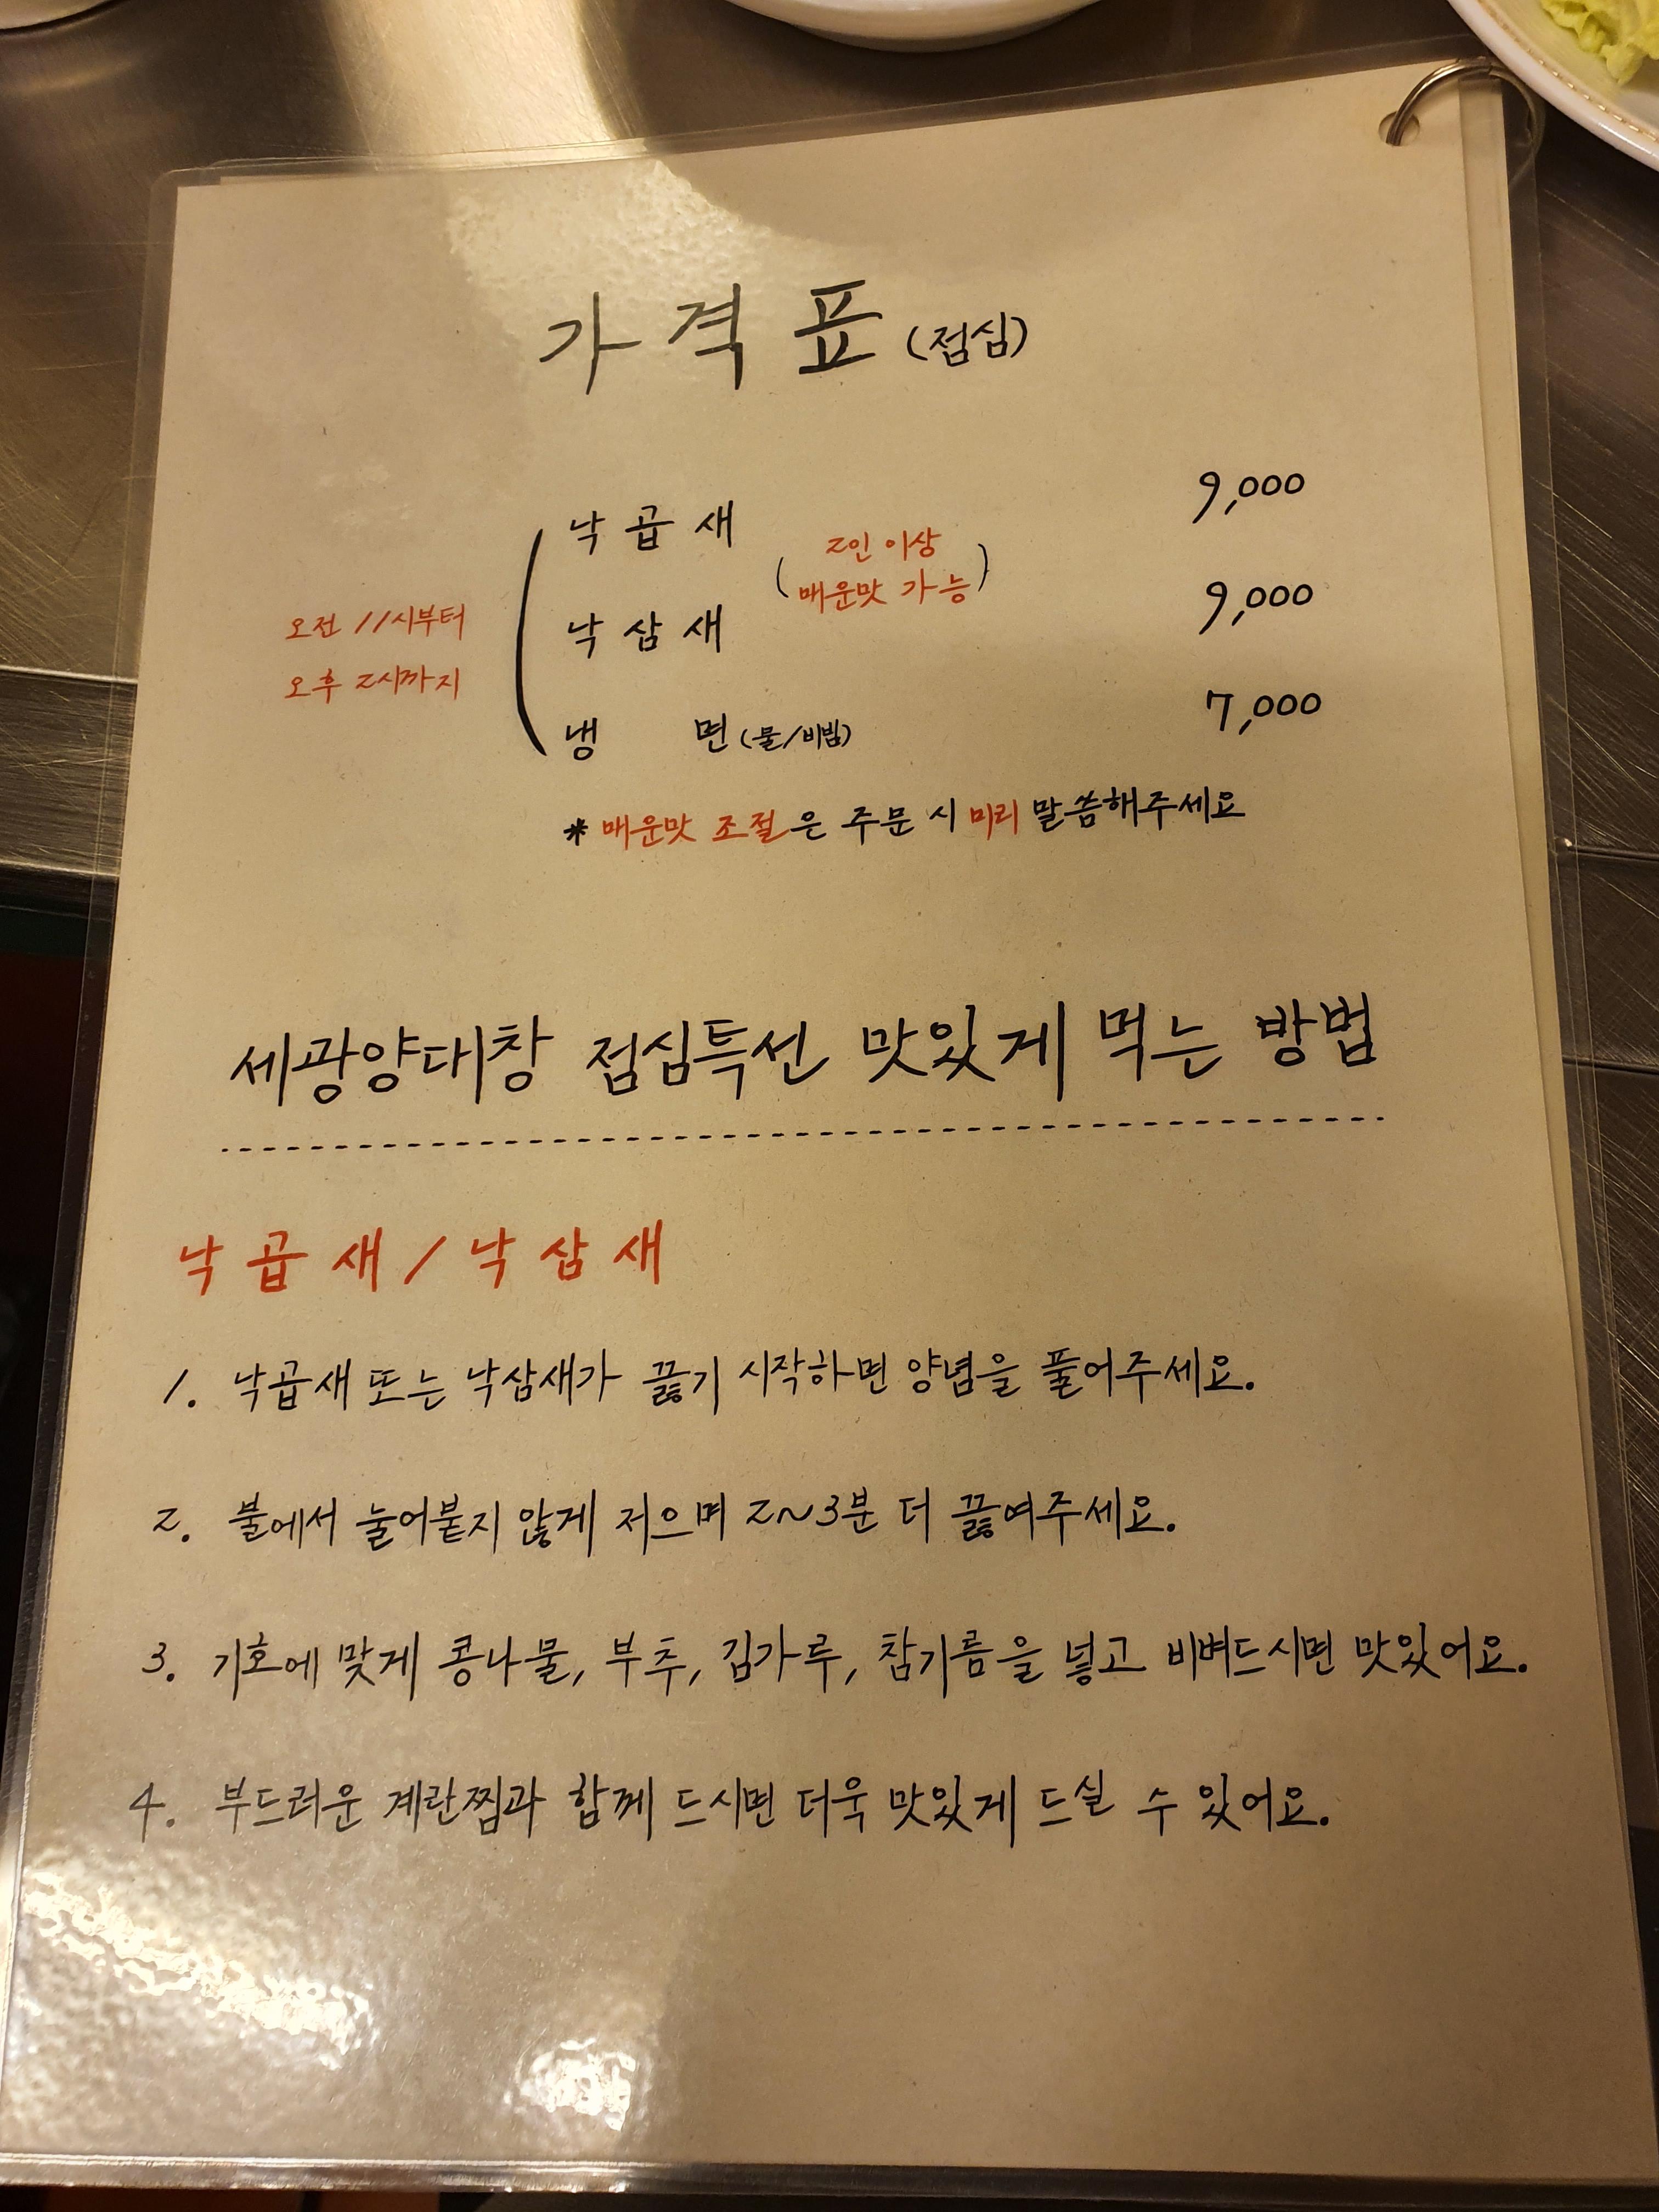 가격표 (점심)
낙곱새 9,000
(2인 이상
매운맛 가능)
오전 11시부터
오후 2시까지
낙삼새 9,000
냉 면 (물/비빔) 7,000
* 매운맛 조절은 주문 시 미리 말씀해주세요
세광양대창 점심특선 맛있게 먹는 방법
낙곱새 / 낙삼새
1. 낙곱새 또는 낙삼새가 끓기 시작하면 양념을 풀어주세요.
2. 불에서 눌어붙지 않게 저으며 2~3분 더 끓여주세요.
3. 기호에 맞게 콩나물, 부추, 김가루, 참기름을 넣고 비벼드시면 맛있어요.
4. 부드러운 계란찜과 함께 드시면 더욱 맛있게 드실 수 있어요.